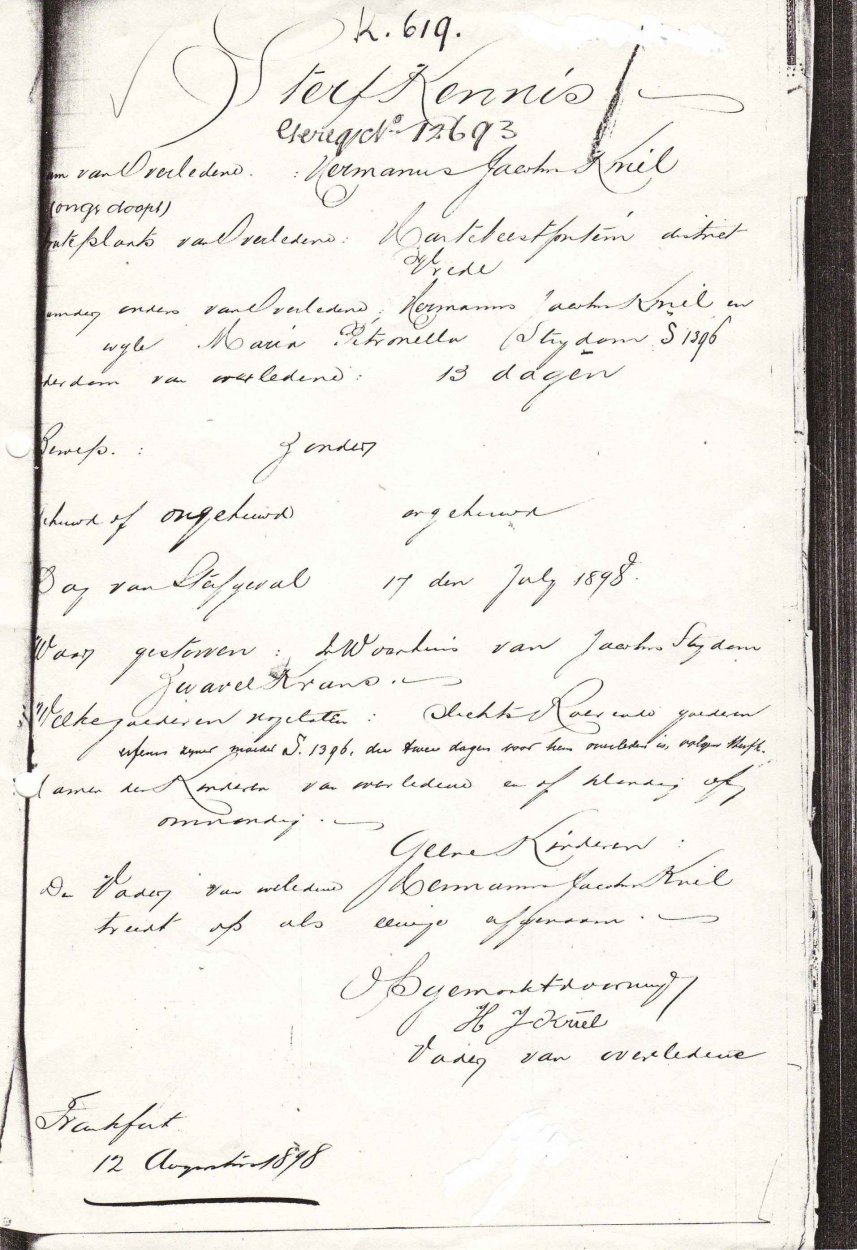 K. 619.
Sterf Kennis
Gereg. No 12693
am van Overledene : Hermanus Jacobus Kriel
(ongedoopt)
orteplaats van Overledene : Hartebeestfontein district
Vrede
ouders van Overledene : Hermanus Jacobus Kriel en
wyle Maria Petronella Strydom S 1396
derdom van overledene : 13 dagen
Bewys : Zonder
ehuwd of ongehuwd ongehuwd
Dag van Sterfgeval 17 den July 1898.
Waar gestorven : In Woonhuis van Jacobus Strydom
Zwavel Krans.
Welke goederen nagelaten : Slechts Roerende goederen
erfenis zyner moeder S. 1396, die twee dagen voor hem overleden is, volgens
Namen der Kinderen van overledene en of Mondig of
onmondig.
Geene Kinderen :
De Vader van overledene Hermanus Jacobus Kriel
treedt op als eenige erfgenaam.
Opgemaakt door my
H J Kriel
Vader van overledene
Frankfort
12 Augustus 1898